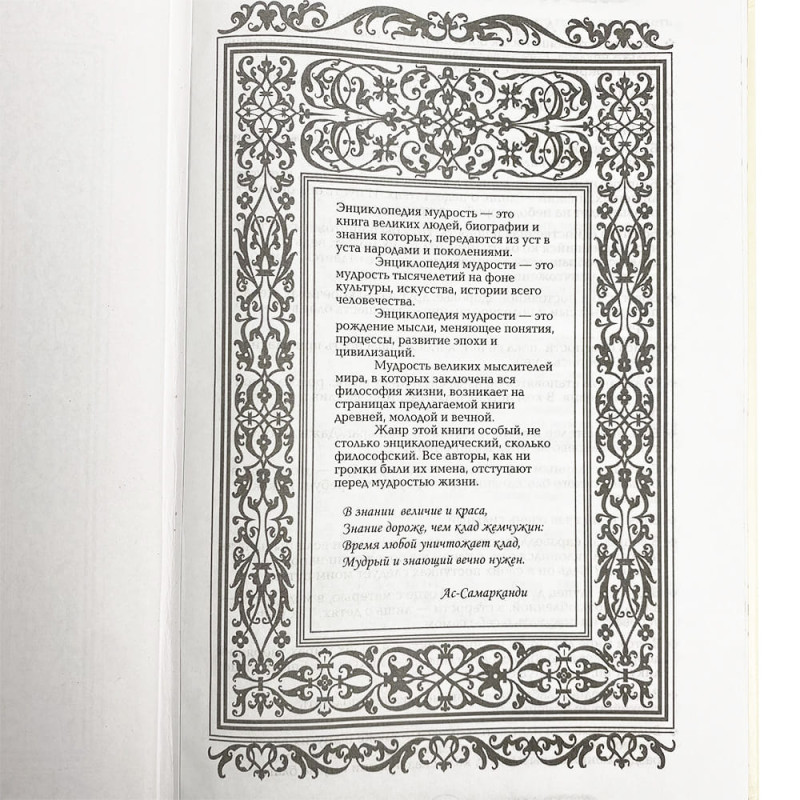 Энциклопедия мудрость — это
книга великих людей, биографии и
знания которых, передаются из уст в
уста народами и поколениями.
Энциклопедия мудрости — это
мудрость тысячелетий на фоне
культуры, искусства, истории всего
человечества.
Энциклопедия мудрости — это
рождение мысли, меняющее понятия,
процессы, развитие эпохи и
цивилизаций.
Мудрость великих мыслителей
мира, в которых заключена вся
философия жизни, возникает на
страницах предлагаемой книги
древней, молодой и вечной.
Жанр этой книги особый, не
столько энциклопедический, сколько
философский. Все авторы, как ни
громки были их имена, отступают
перед мудростью жизни.
В знании величие и краса,
Знание дороже, чем клад жемчужин:
Время любой уничтожает клад,
Мудрый и знающий вечно нужен.
Ас-Самарканди